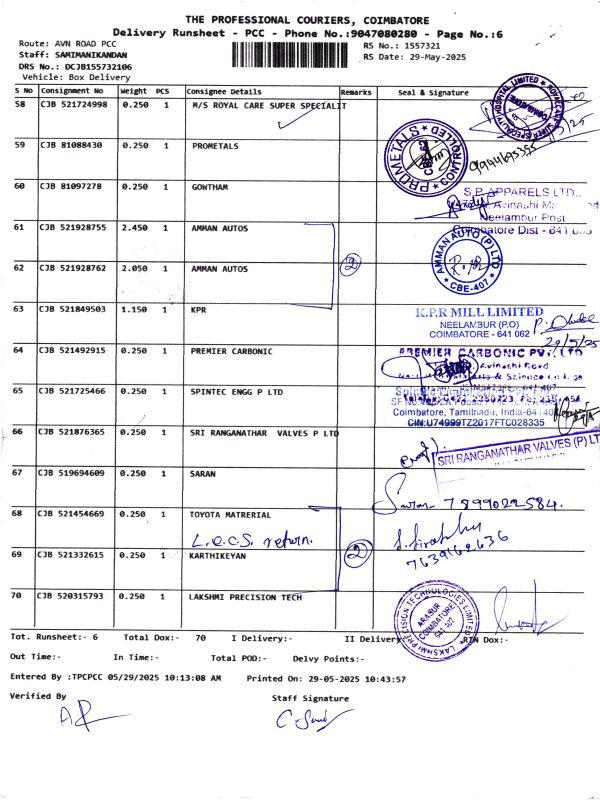 THE PROFESSIONAL COURIERS, COIMBATORE
Delivery Runsheet - PCC - Phone No.:9047080280 - Page No.:6
Route: AVN ROAD PCC
RS No.: 1557321
Staff: SAMIMANIKANDAN
RS Date: 29-May-2025
DRS No.: DCJB155732106
Vehicle: Box Delivery
S No Consignment No Weight PCS Consignee Details Remarks Seal & Signature
58 CJB 521724998 0.250 1 M/S ROYAL CARE SUPER SPECIALIT
59 CJB 81088430 0.250 1 PROMETALS
PROMETALS
9944695395
60 CJB 81097278 0.250 1 GOWTHAM
S.P. APPARELS LTD.,
Avinashi
Neelambur Post
Coimbatore Dist - 641
61 CJB 521928755 2.450 1 AMMAN AUTOS
AMMAN AUTO (P) LTD
CBE-407
2
62 CJB 521928762 2.050 1 AMMAN AUTOS
63 CJB 521849503 1.150 1 KPR
K.P.R MILL LIMITED
NEELAMBUR (P.O)
COIMBATORE - 641 062
29/5/25
64 CJB 521492915 0.250 1 PREMIER CARBONIC
PREMIER CARBONIC PVT. LTD
Avinashi Road
65 CJB 521725466 0.250 1 SPINTEC ENGG P LTD
Coimbatore, Tamilnadu, India-64140
CIN:U74999TZ2017FTC028335
66 CJB 521876365 0.250 1 SRI RANGANATHAR VALVES P LTD
SRI RANGANATHAR VALVES (P) LT
67 CJB 519694609 0.250 1 SARAN
Saran 7899022584.
68 CJB 521454669 0.500 1 TOYOTA MATRERIAL
L.O.C.S. return.
7639162636
2
69 CJB 521332615 0.250 1 KARTHIKEYAN
70 CJB 520315793 0.250 1 LAKSHMI PRECISION TECH
LAKSHMI PRECISION TECHNOLOGIES LIMITED
ARASUR
COIMBATORE
641 407
Tot. Runsheet:- 6 Total Dox:- 70 I Delivery:- II Delivery:- RTN Dox:-
Out Time:- In Time:- Total POD:- Delvy Points:-
Entered By :TPCPCC 05/29/2025 10:13:08 AM Printed On: 29-05-2025 10:43:57
Verified By Staff Signature